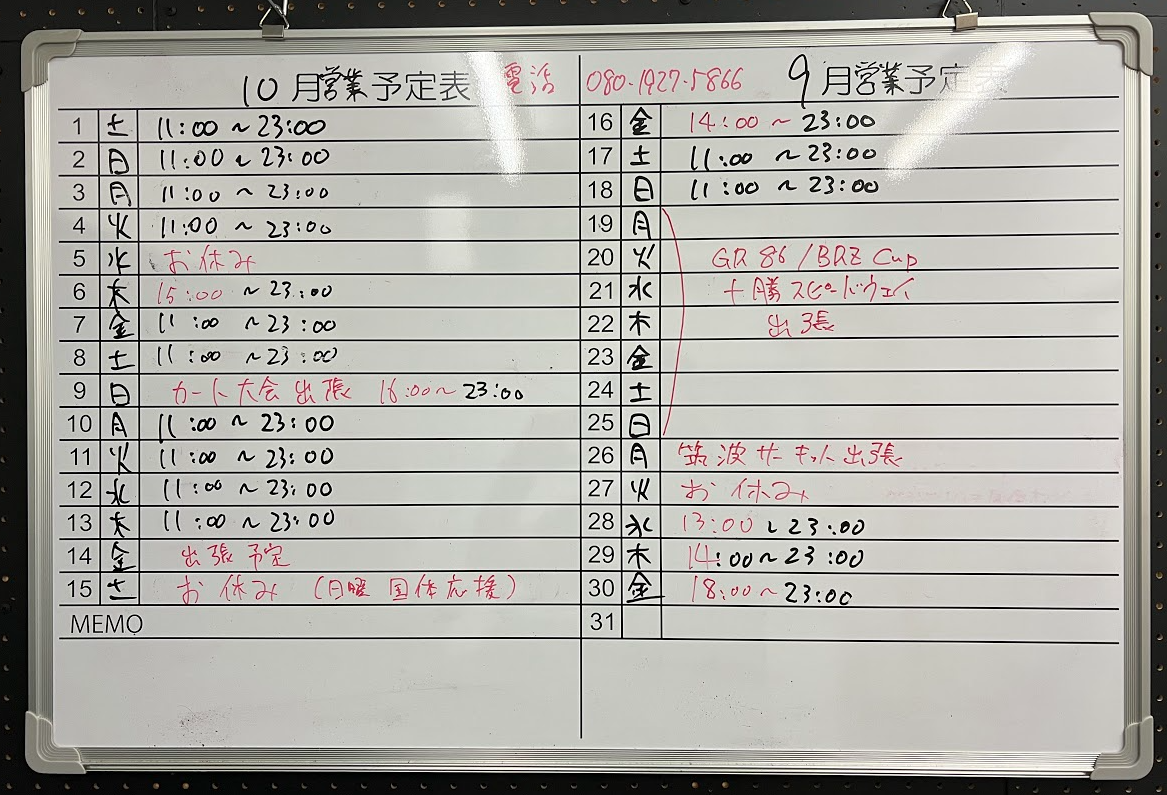 10月営業予定表 電話
1 土 11:00～23:00
2 日 11:00～23:00
3 月 11:00～23:00
4 火 11:00～23:00
5 水 お休み
6 木 15:00～23:00
7 金 11:00～23:00
8 土 11:00～23:00
9 日 カート大会出張 16:00～23:00
10 月 11:00～23:00
11 火 11:00～23:00
12 水 11:00～23:00
13 木 11:00～23:00
14 金 出張予定
15 土 お休み（日曜 国体応援）
MEMO
080-1927-5866 9月営業予定表
16 金 14:00～23:00
17 土 11:00～23:00
18 日 11:00～23:00
19 月
20 火 GR86/BRZ Cup
21 水 十勝スピードウェイ
22 木 出張
23 金
24 土
25 日
26 月 筑波サーキット出張
27 火 お休み
28 水 13:00～23:00
29 木 14:00～23:00
30 金 18:00～23:00
31